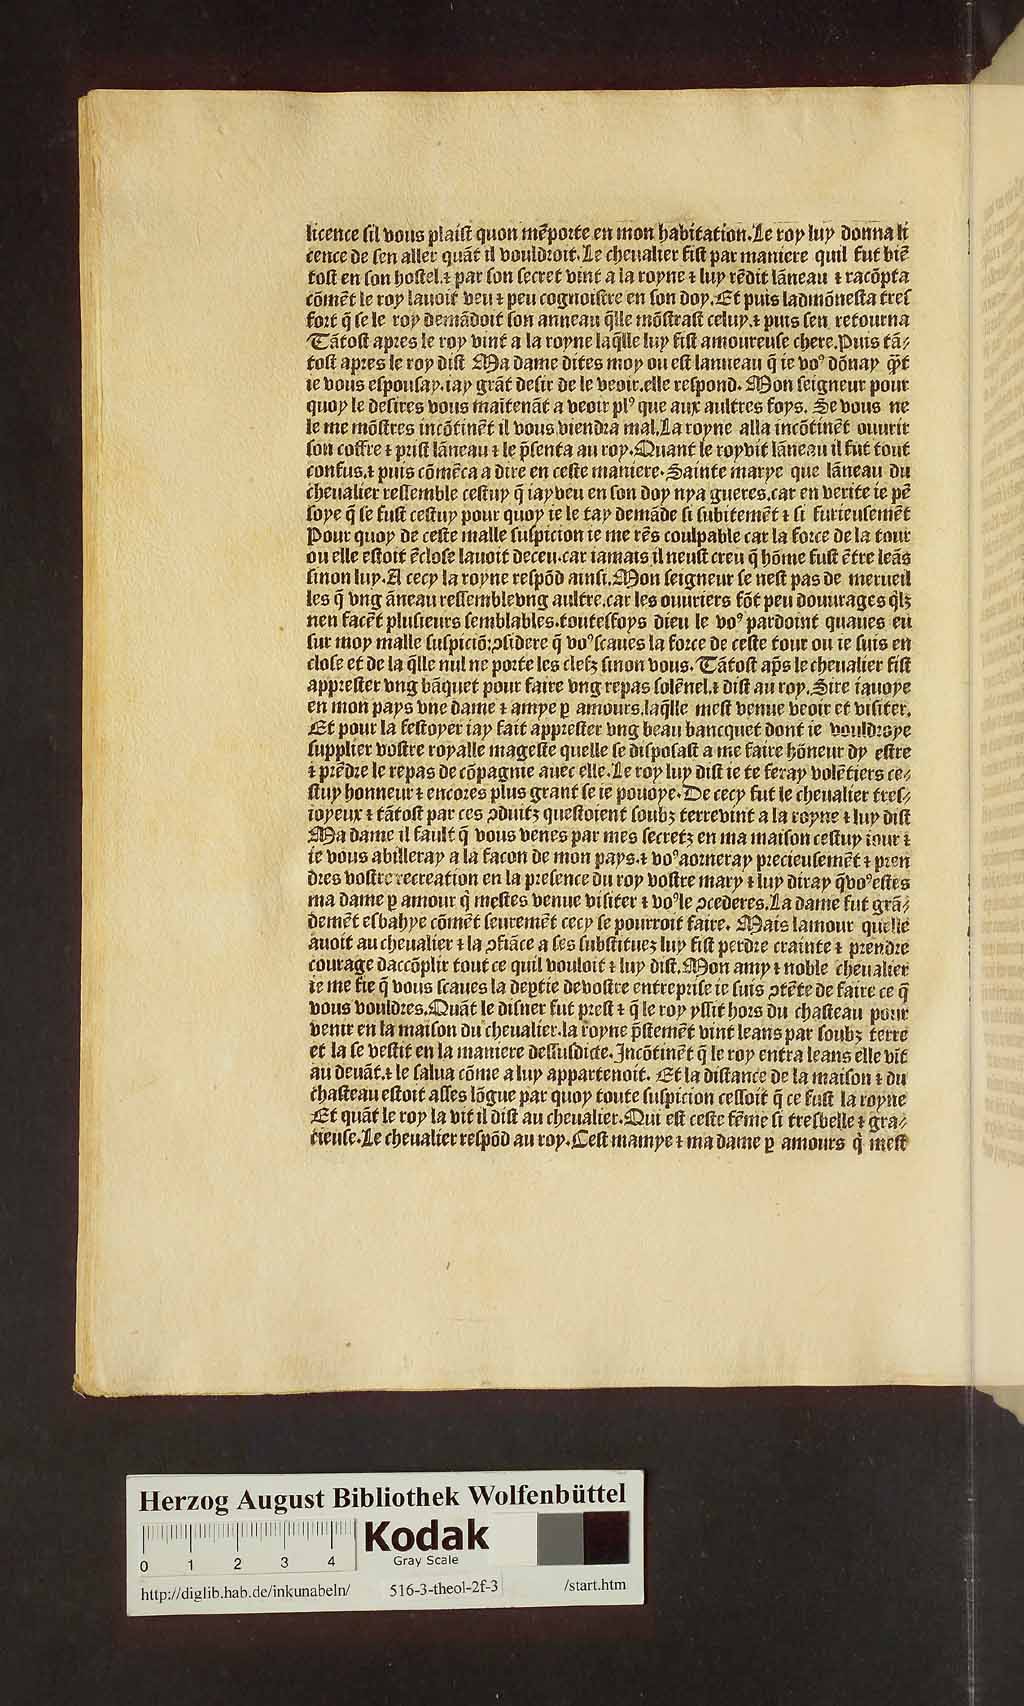 licence sil vous plaist quon mẽporte en mon habitation.Le roy luy donna li
cence de sen aller quãt il vouldroit.Le cheualier fist par maniere quil fut biẽ
tost en son hostel.⁊ par son secret vint a la royne ⁊ luy rẽdit lãneau ⁊ racõpta
cõmẽt le roy lauoit veu ⁊ peu cognoistre en son doy.Et puis ladmõnesta tres
fort q̃ se le roy demãdoit son anneau q̃lle mõstrast celuy.⁊ puis sen retourna
Tãtost apres le roy vint a la royne laq̃lle luy fist amoureuse chere.Puis tã⸗
tost apres le roy dist Ma dame dites moy ou est lanneau q̃ ie voꝰ dõnay q̃t
ie vous espousay.iay grãt desir de le veoir.elle respond. Mon seigneur pour
quoy le desires vous maĩtenãt a veoir plꝰ que aux aultres foys. Se vous ne
le me mõstres incõtinẽt il vous viendra mal.La royne alla incõtinẽt ouurir
son coffre ⁊ prist lãneau ⁊ le p̃senta au roy.Quant le royvit lãneau il fut tout
confus.⁊ puis cõmẽca a dire en ceste maniere.Sainte marye que lãneau du
cheualier ressemble cestuy q̃ iayveu en son doy nya gueres.car en verite ie pẽ
soye q̃ se fust cestuy pour quoy ie le tay demãde si subitemẽt ⁊ si furieusemẽt
Pour quoy de ceste malle suspicion ie me rẽs coulpable car la force de la tour
ou elle estoit ẽclose lauoit deceu.car iamais il neust creu q̃ hõme fust ẽtre leãs
sinon luy.A cecy la royne respõd ainsi.Mon seigneur se nest pas de merueil
les q̃ vng ãneau ressemblevng aultre.car les ouuriers fõt peu douurages q̃lꝫ
nen facẽt plusieurs semblables.toutesfoys dieu le voꝰ pardoint quaues eu
sur moy malle suspiciõ:ↄsidere q̃ voꝰscaues la force de ceste tour ou ie suis en
close et de la q̃lle nul ne porte les clefꝫ sinon vous. Tãtost ap̃s le cheualier fist
apprester vng bãquet pour faire vng repas solẽnel.⁊ dist au roy.Sire iauoye
en mon pays vne dame ⁊ amye ꝑ amours.laq̃lle mest venue veoir et visiter.
Et pour la festoyer iay fait apprester vng beau bancquet dont ie vouldroye
supplier vostre royalle mageste quelle se disposast a me faire hõneur dy estre
⁊ prẽdre le repas de cõpagnie auec elle.Le roy luy dist ie te feray volẽtiers ce⸗
stuy honneur ⁊ encores plus grant se ie pouoye.De cecy fut le cheualier tres⸗
ioyeux ⁊ tãtost par ces ↄduitꝫ questoient soubꝫ terrevint a la royne ⁊ luy dist
Ma dame il fault q̃ vous venes par mes secretꝫ en ma maison cestuy iour ⁊
ie vous abilleray a la facon de mon pays.⁊ voꝰaorneray precieusemẽt ⁊ pren
dres vostre recreation en la presence du roy vostre mary ⁊ luy diray q̃voꝰestes
ma dame ꝑ amour q̃ mestes venue visiter ⁊ voꝰle ↄcederes.La dame fut grã⸗
demẽt esbahye cõmẽt seuremẽt cecy se pourroit faire. Mais lamour quelle
auoit au cheualier ⁊ la ↄfiãce a ses substitueꝫ luy fist perdre crainte ⁊ prendre
courage daccõplir tout ce quil vouloit ⁊ luy dist.Mon amy ⁊ noble cheualier
ie me fie q̃ vous scaues la deꝑtie devostre entreprise ie suis ↄtẽte de faire ce q̃
vous vouldres.Quãt le disner fut prest ⁊ q̃ le roy yssit hors du chasteau pour
venir en la maison du cheualier.la royne p̃stemẽt vint leans par soubꝫ terre
et la se vestit en la maniere dessusdicte.Incõtinẽt q̃ le roy entra leans elle vĩt
au deuãt.⁊ le salua cõme a luy appartenoit. Et la distance de la maison ⁊ du
chasteau estoit asses lõgue par quoy toute suspicion cessoit q̃ ce fust la royne
Et quãt le roy la vit il dist au cheualier.Qui est ceste fẽme si tresbelle ⁊ gra⸗
cieuse.Le cheualier respõd au roy.Cest mamye ⁊ ma dame ꝑ amours q̃ mest
Herzog August Bibliothek Wolfenbüttel
0 1 2 3 4
Kodak
Gray Scale
http://diglib.hab.de/inkunabeln/ 516-3-theol-2f-3 /start.htm